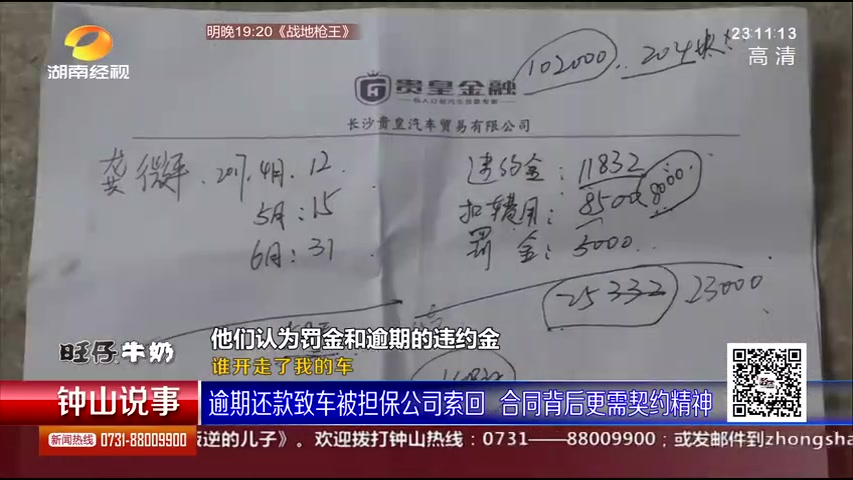 明晚19:20《战地枪王》
23:11:13
湖南经视
高清
102000
贵皇金融
私人订制汽车贷款专家
长沙贵皇汽车贸易有限公司
龚微平.2017.4月.12
5月:15
6月:31
违约金:11832
扣车费用:8500 8000
罚金:5000
25332 23000
他们认为罚金和逾期的违约金
旺仔牛奶
谁开走了我的车
钟山说事
逾期还款致车被担保公司索回 合同背后更需契约精神
新闻热线 0731-88009900
叛逆的儿子》。欢迎拨打钟山热线:0731——88009900;或发邮件到zhongsha